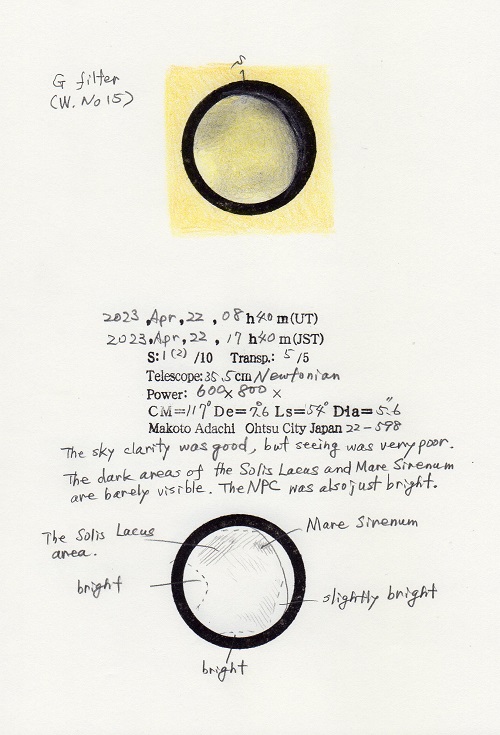 S
G filter
(W. No 15)
2023, Apr, 22, 08 h40 m(UT)
2023, Apr, 22, 17 h40 m(JST)
S: 1 (2) /10 Transp.: 5 /5
Telescope: 35.5cm Newtonian
Power: 600× 800 ×
CM=117° De=7.6 Ls=54° Dia=5.6"
Makoto Adachi Ohtsu City Japan 22-598
The sky clarity was good, but seeing was very poor.
The dark areas of the Solis Lacus and Mare Sirenum
are barely visible. The NPC was also just bright.
The Solis Lacus
area.
Mare Sirenum
bright
slightly bright
bright